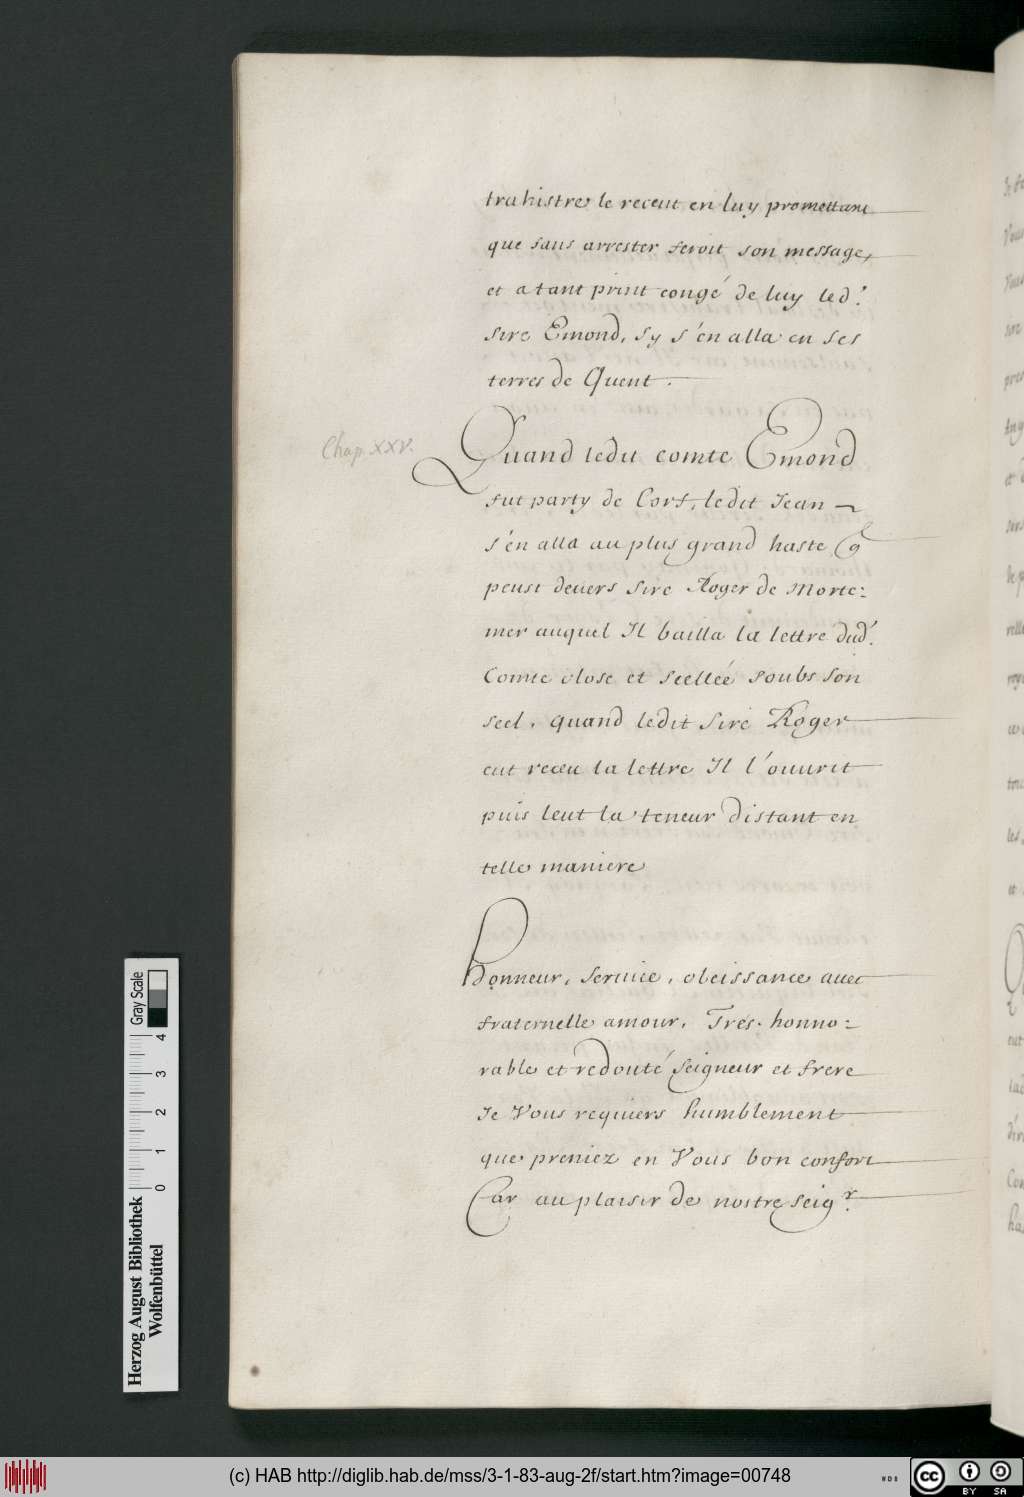 trahistre le receut en luy promettant
que sans arrester feroit son message,
et a tant print congé de luy led.
sire Emond, sy s'en alla en ses
terres de Quent.
Chap. XXV.
Quand ledit comte Emond
fut party de Corf, ledit Jean
s'en alla au plus grand haste
peust devers sire Roger de Morte:
mer auquel Il bailla la lettre dud.
Comte close et scellée soubs son
seel, quand ledit Sire Roger
eut receu la lettre Il l'ouurit
puis leut la teneur distant en
telle maniere
Honneur, Seruice, obeissance auec
fraternelle amour, Trés-honno:
rable et redouté seigneur et frere
Je Vous requiers humblement
que preniez en Vous bon confort
Car au plaisir de nostre seigr.
Herzog August Bibliothek
Wolfenbüttel
Gray Scale
0 1 2 3 4
(c) HAB http://diglib.hab.de/mss/3-1-83-aug-2f/start.htm?image=00748
WDB
CC BY SA